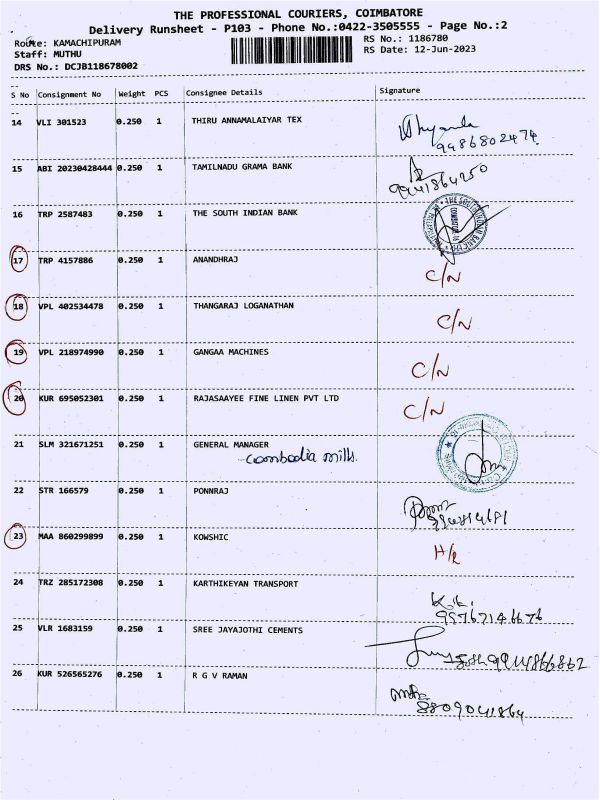 THE PROFESSIONAL COURIERS, COIMBATORE
Delivery Runsheet - P103 - Phone No.:0422-3505555 - Page No.:2
Route: KAMACHIPURAM RS No.: 1186780
Staff: MUTHU RS Date: 12-Jun-2023
DRS No.: DCJB118678002
S No Consignment No Weight PCS Consignee Details Signature
14 VLI 301523 0.250 1 THIRU ANNAMALAIYAR TEX
9486802474
15 ABI 20230428444 0.250 1 TAMILNADU GRAMA BANK
9941864250
16 TRP 2587483 0.250 1 THE SOUTH INDIAN BANK
17 TRP 4157886 0.250 1 ANANDHRAJ C/N
18 VPL 402534478 0.250 1 THANGARAJ LOGANATHAN C/N
19 VPL 218974990 0.250 1 GANGAA MACHINES C/N
20 KUR 695052301 0.250 1 RAJASAAYEE FINE LINEN PVT LTD C/N
21 SLM 321671251 0.250 1 GENERAL MANAGER
- Cambodia mills.
22 STR 166579 0.250 1 PONNRAJ
23 MAA 860299899 0.250 1 KOWSHIC H/R
24 TRZ 285172308 0.250 1 KARTHIKEYAN TRANSPORT
25 VLR 1683159 0.250 1 SREE JAYAJOTHI CEMENTS
26 KUR 526565276 0.250 1 R G V RAMAN
8809041864